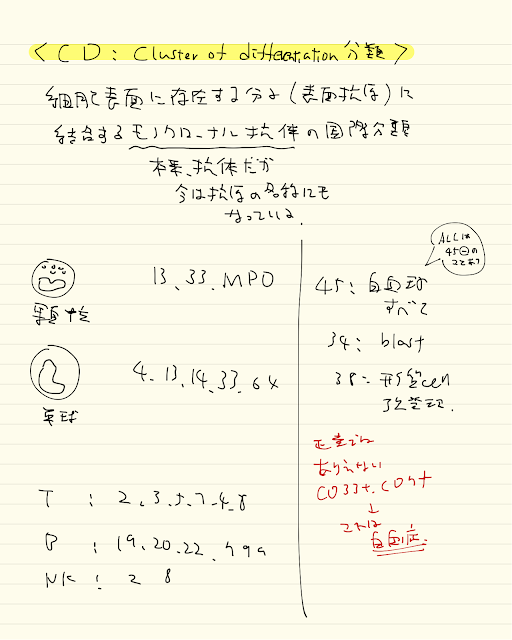 <CD: Cluster of differentiation 分類>
細胞表面に存在する分子(表面抗原)に
結合するモノクローナル抗体の国際分類
本来、抗体だが
今は抗原の名称にも
なっている.
13、33、MPO
顆粒
4、13、14、33、64
単球
T : 2、3、5、7、4、8
B : 19、20、22、79a
NK :
ALLは
45⊖の
こともあり
45: 白血球
すべて
34: blast
38: 形質cell
強発現.
正常では
ありえない
CD33+、
↓
これは
白血症.